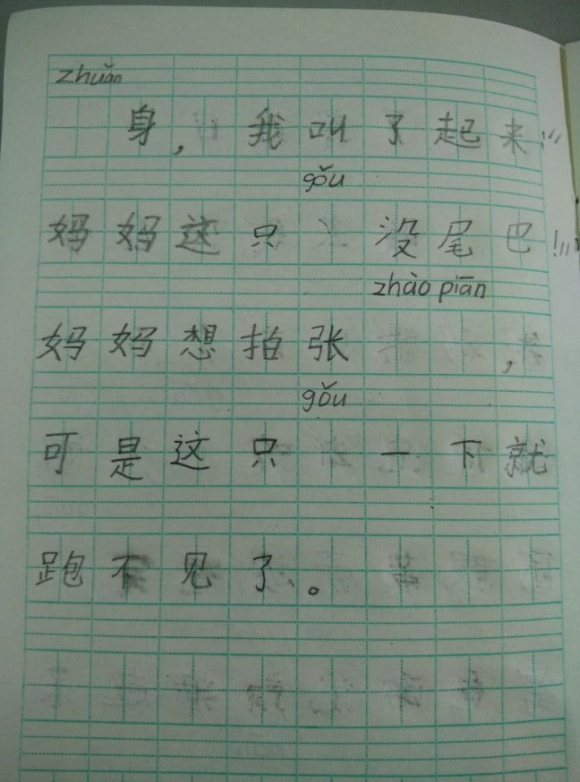 zhuǎn
身,我叫了起来:“
gǒu
妈妈这只 没尾巴!”
zhào piān
妈妈想拍张 ,
gǒu
可是这只 一下就
跑不见了。